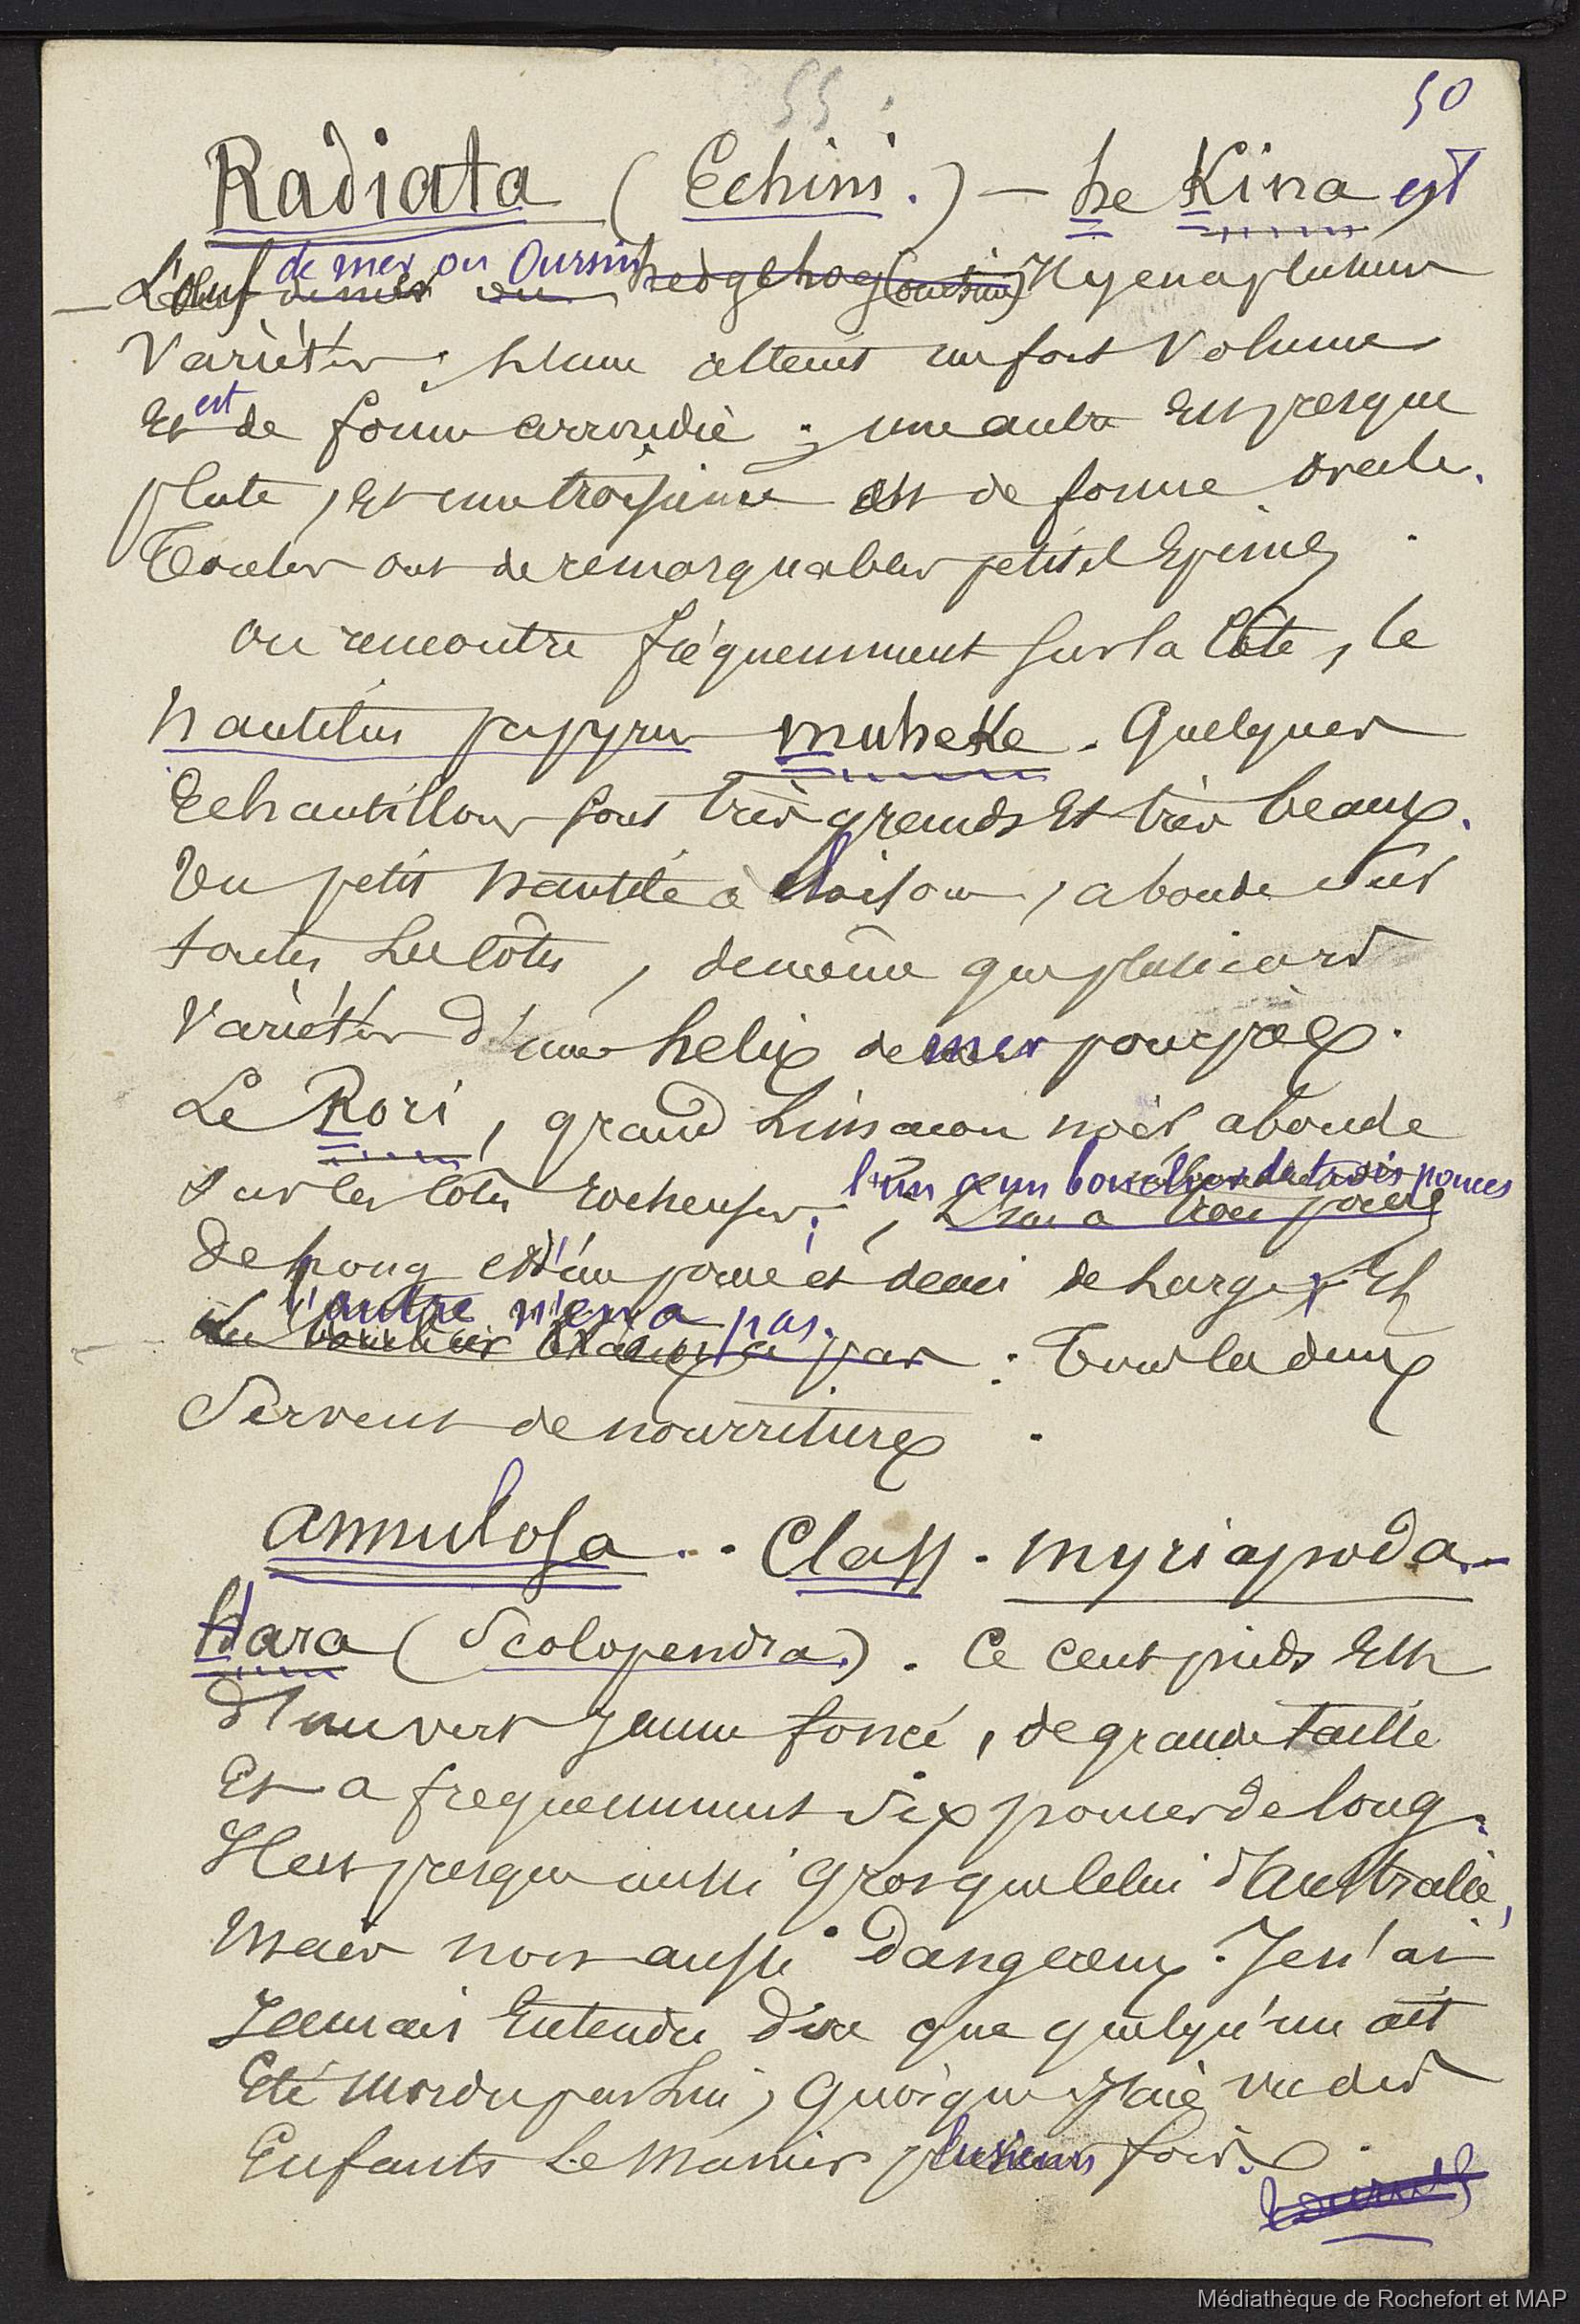 55
50
Radiata (Echini.) — Le Kina est
de mer ou Oursin
— L'œuf de mer ou hedgehog (oursin) Il y en a plusieurs
Variétés ; L'une atteint un fort Volume
est
Et de forme arrondie ; une autre Est presque
plate, Et une troisième est de forme ovale.
Toutes ont de remarquables petites Epines.
On rencontre fréquemment sur la Côte, le
Nautilus papyrus muheke. Quelques
Echantillons sont très grands Et très beaux.
Un petit Nautile à Cloison, abonde sur
toutes Les Côtes, de même que plusieurs
Variétés d'une helix de mer pourpre.
Le Rori, grand Limaçon noir abonde
l'un a un bouclier de trois pouces
sur les côtes rocheuses ; L'un a trois pouces
De Long et d'un pouce et demi de Large, Et
l'autre n'en a pas.
pas : Tous les deux
Servent de nourriture.
Annulosa.. Class. Myriapoda.
Wara (Scolopendra). Ce cent pieds Est
d'un vert Jaune foncé, de grande taille
Et a frequemment Six pouces de long.
Il est presque aussi gros que celui d'Australie,
Mais non aussi Dangereux. Je n'ai
Jamais Entendu dire que quelqu'un ait
Eté Mordu par Lui, Quoique J'aie vu des
Enfants Le Manier plusieurs fois.
Médiathèque de Rochefort et MAP